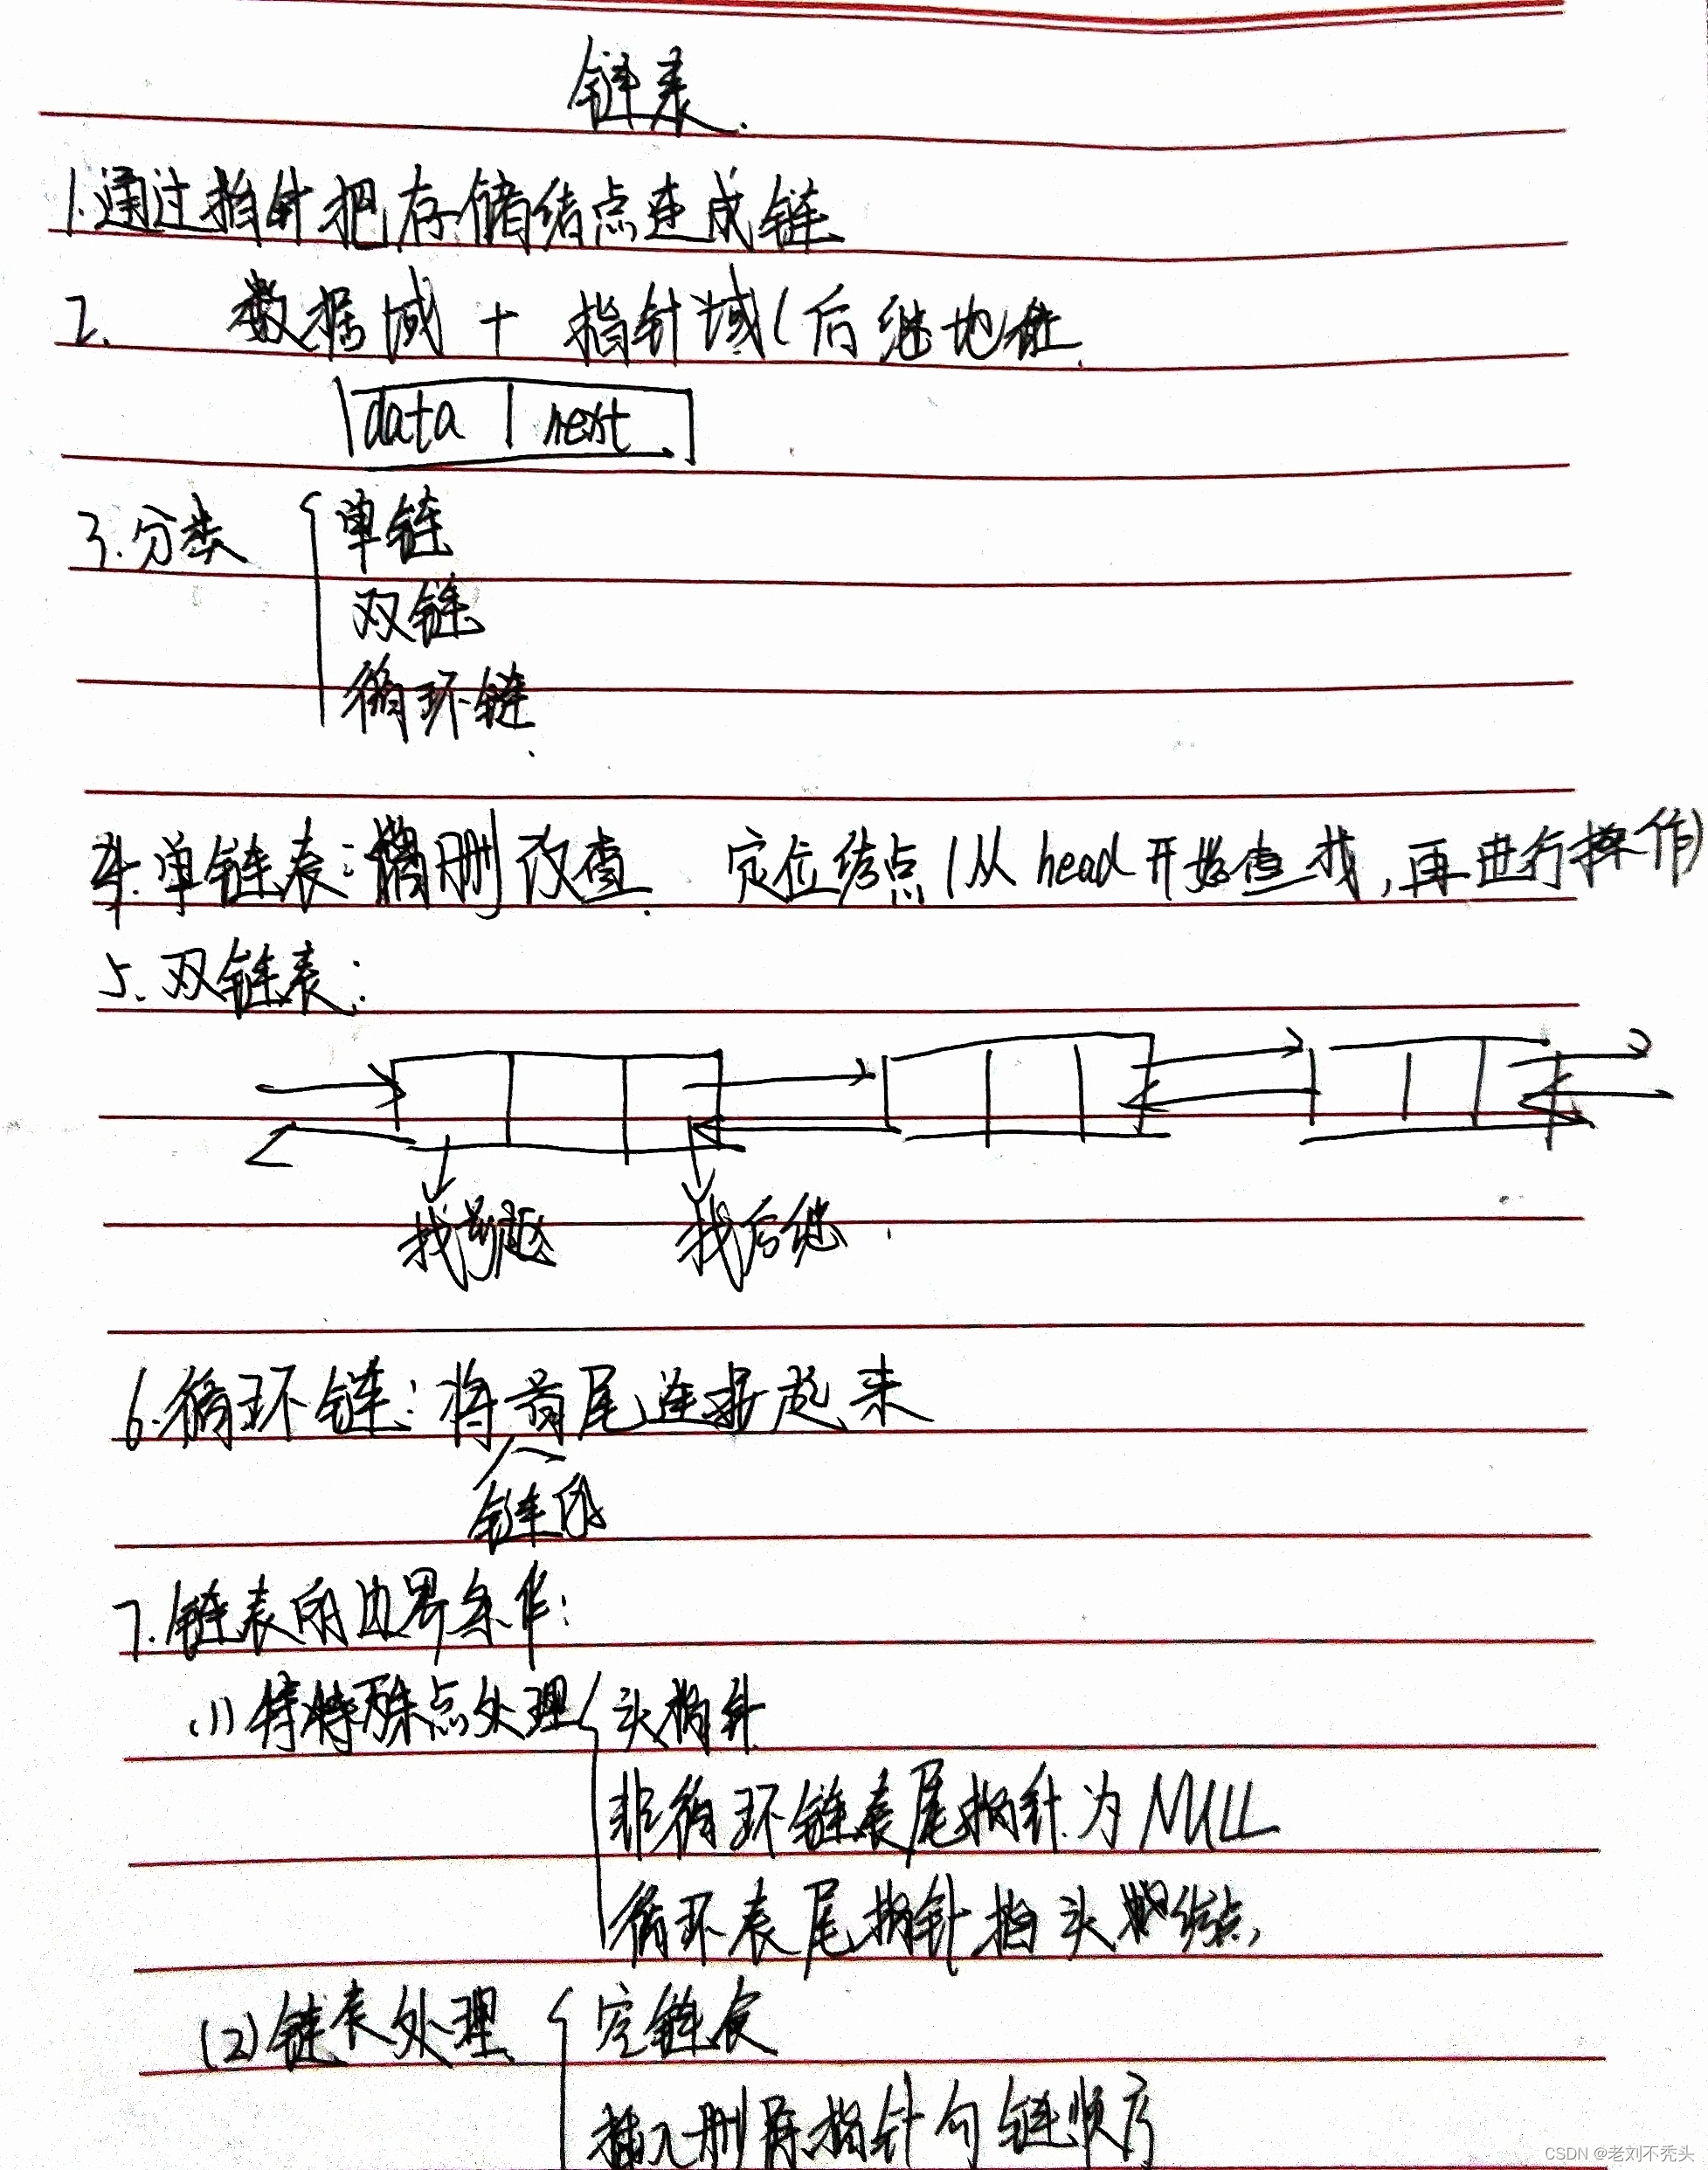 链表.
1.通过指针把存储结点连成链
2. 数据域 + 指针域(后继地址.
data next
3.分类 单链
双链
循环链.
4.单链表:增删改查. 定位结点(从head开始查找,再进行操作)
5.双链表:
找前驱 找后继.
6.循环链:将首尾连接起来
链的
7.链表的边界条件:
(1)特殊点处理 头指针
非循环链表尾指针为NULL
循环表尾指针指头结点,
(2)链表处理 空链表
插入删除指针勾链顺序
CSDN @老刘不秃头